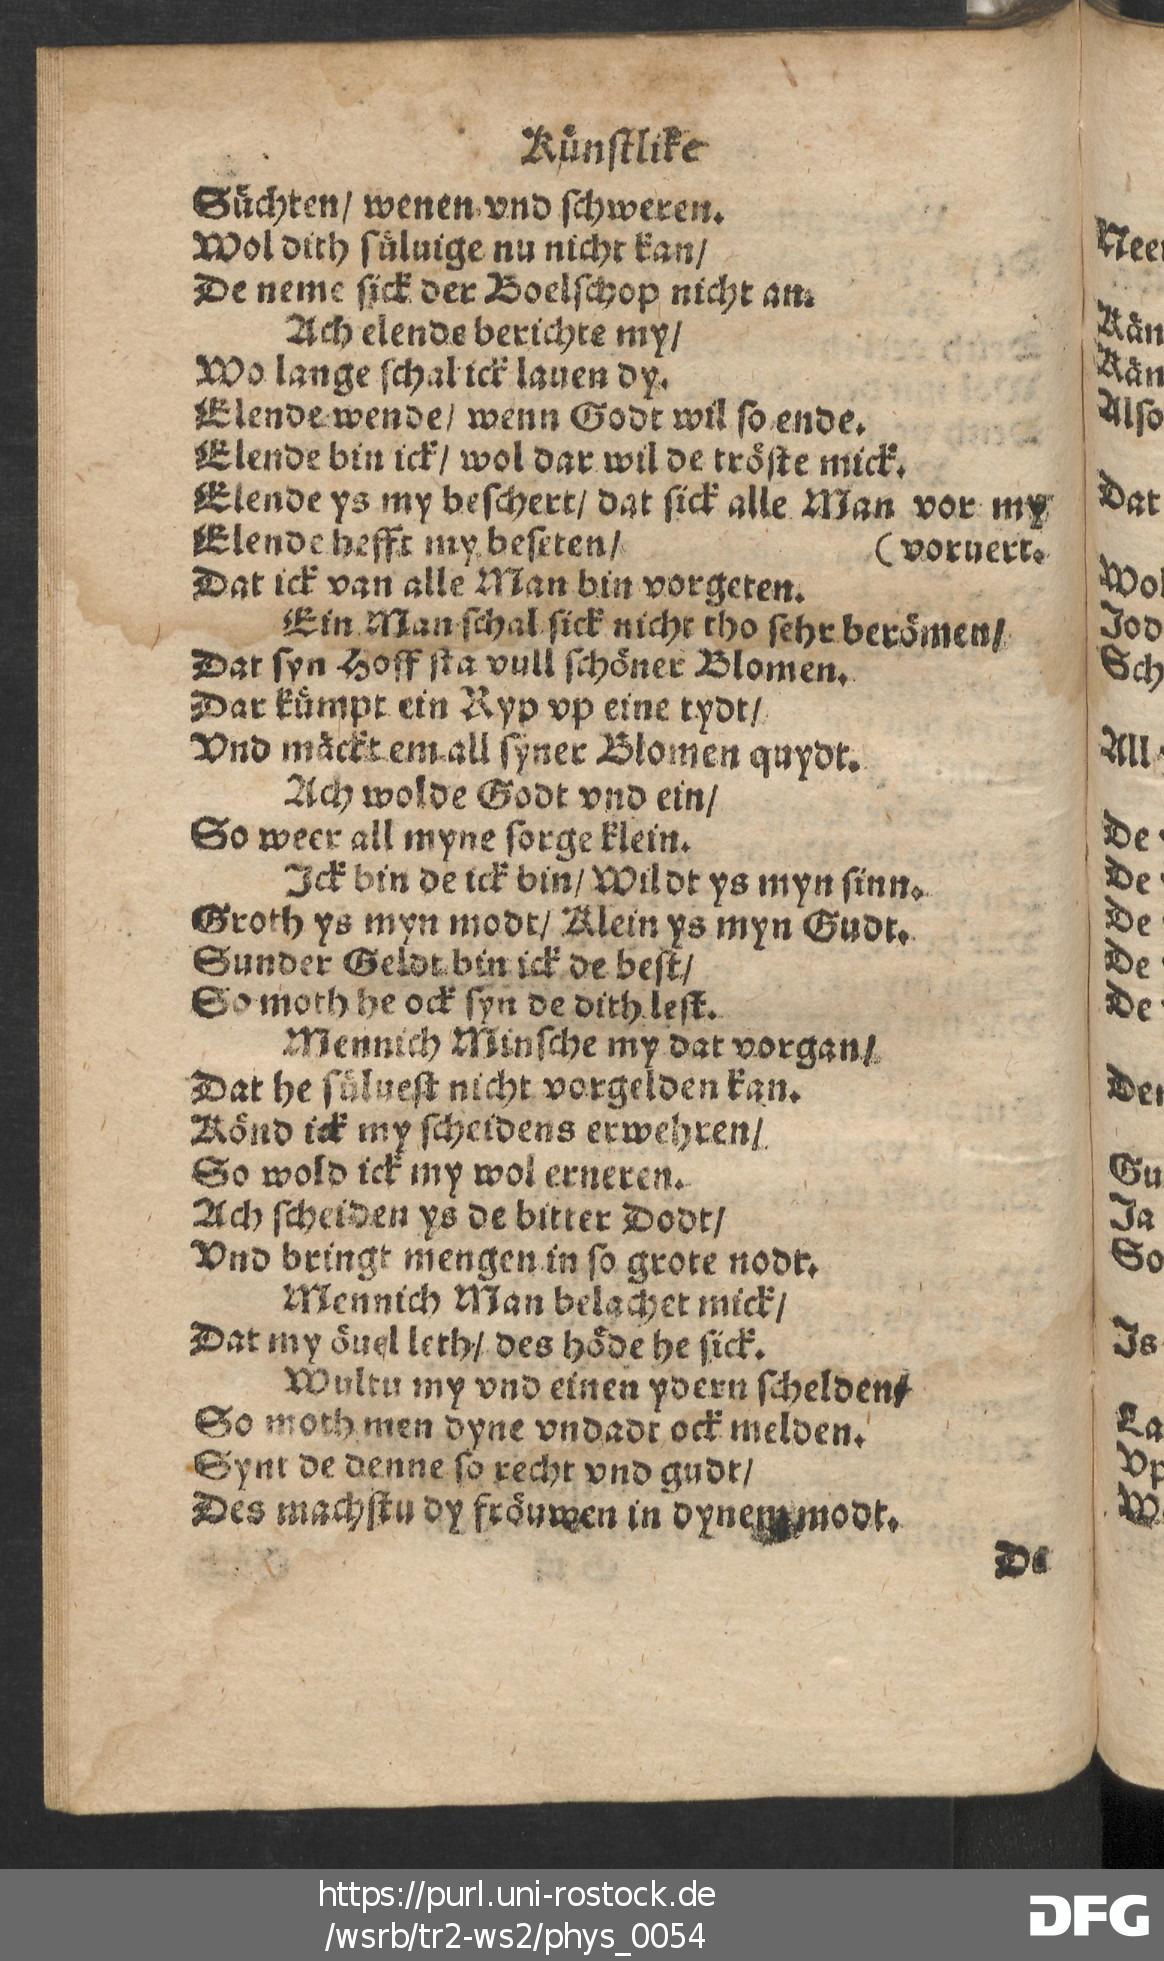 Kuͤnſtlike
Suͤchten/ wenen vnd ſchweren.
Wol dith ſuͤluige nu nicht kan/
De neme ſick der Boelſchop nicht an.
Ach elende berichte my/
Wo lange ſchal ick lauen dy.
Elende wende/ wenn Godt wil ſo ende.
Elende bin ick/ wol dar wil de troͤſte mick.
Elende ys my beſchert/ dat ſick alle Man vor my
Elende hefft my beſeten/ (voruert.
Dat ick van alle Man bin vorgeten.
Ein Man ſchal ſick nicht tho ſehr beroͤmen/
Dat ſyn Hoff ſta vull ſchoͤner Blomen.
Dar kuͤmpt ein Ryp vp eine tydt/
Vnd maͤckt em all ſyner Blomen quydt.
Ach wolde Godt vnd ein/
So weer all myne ſorge klein.
Ick bin de ick bin/ Wildt ys myn ſinn.
Groth ys myn modt/ Klein ys myn Gudt.
Sunder Geldt bin ick de beſt/
So moth he ock ſyn de dith leſt.
Mennich Minſche my dat vorgan/
Dat he ſuͤlueſt nicht vorgelden kan.
Koͤnd ick my ſcheidens erwehren/
So wold ick my wol erneren.
Ach ſcheiden ys de bitter Dodt/
Vnd bringt mengen in ſo grote nodt.
Mennich Man belachet mick/
Dat my oͤuel leth/ des hoͤde he ſick.
Wultu my vnd einen ydern ſchelden/
So moth men dyne vndadt ock melden.
Synt de denne ſo recht vnd gudt/
Des machſtu dy froͤuwen in dynem modt.
De
Kaͤn
Kaͤn
Alſo
Dat
Wol
Jod
Sch
All
De
De
De
De
De
Gu
Ja
So
Js
La
Vp
https://purl.uni-rostock.de
/wsrb/tr2-ws2/phys_0054
DFG